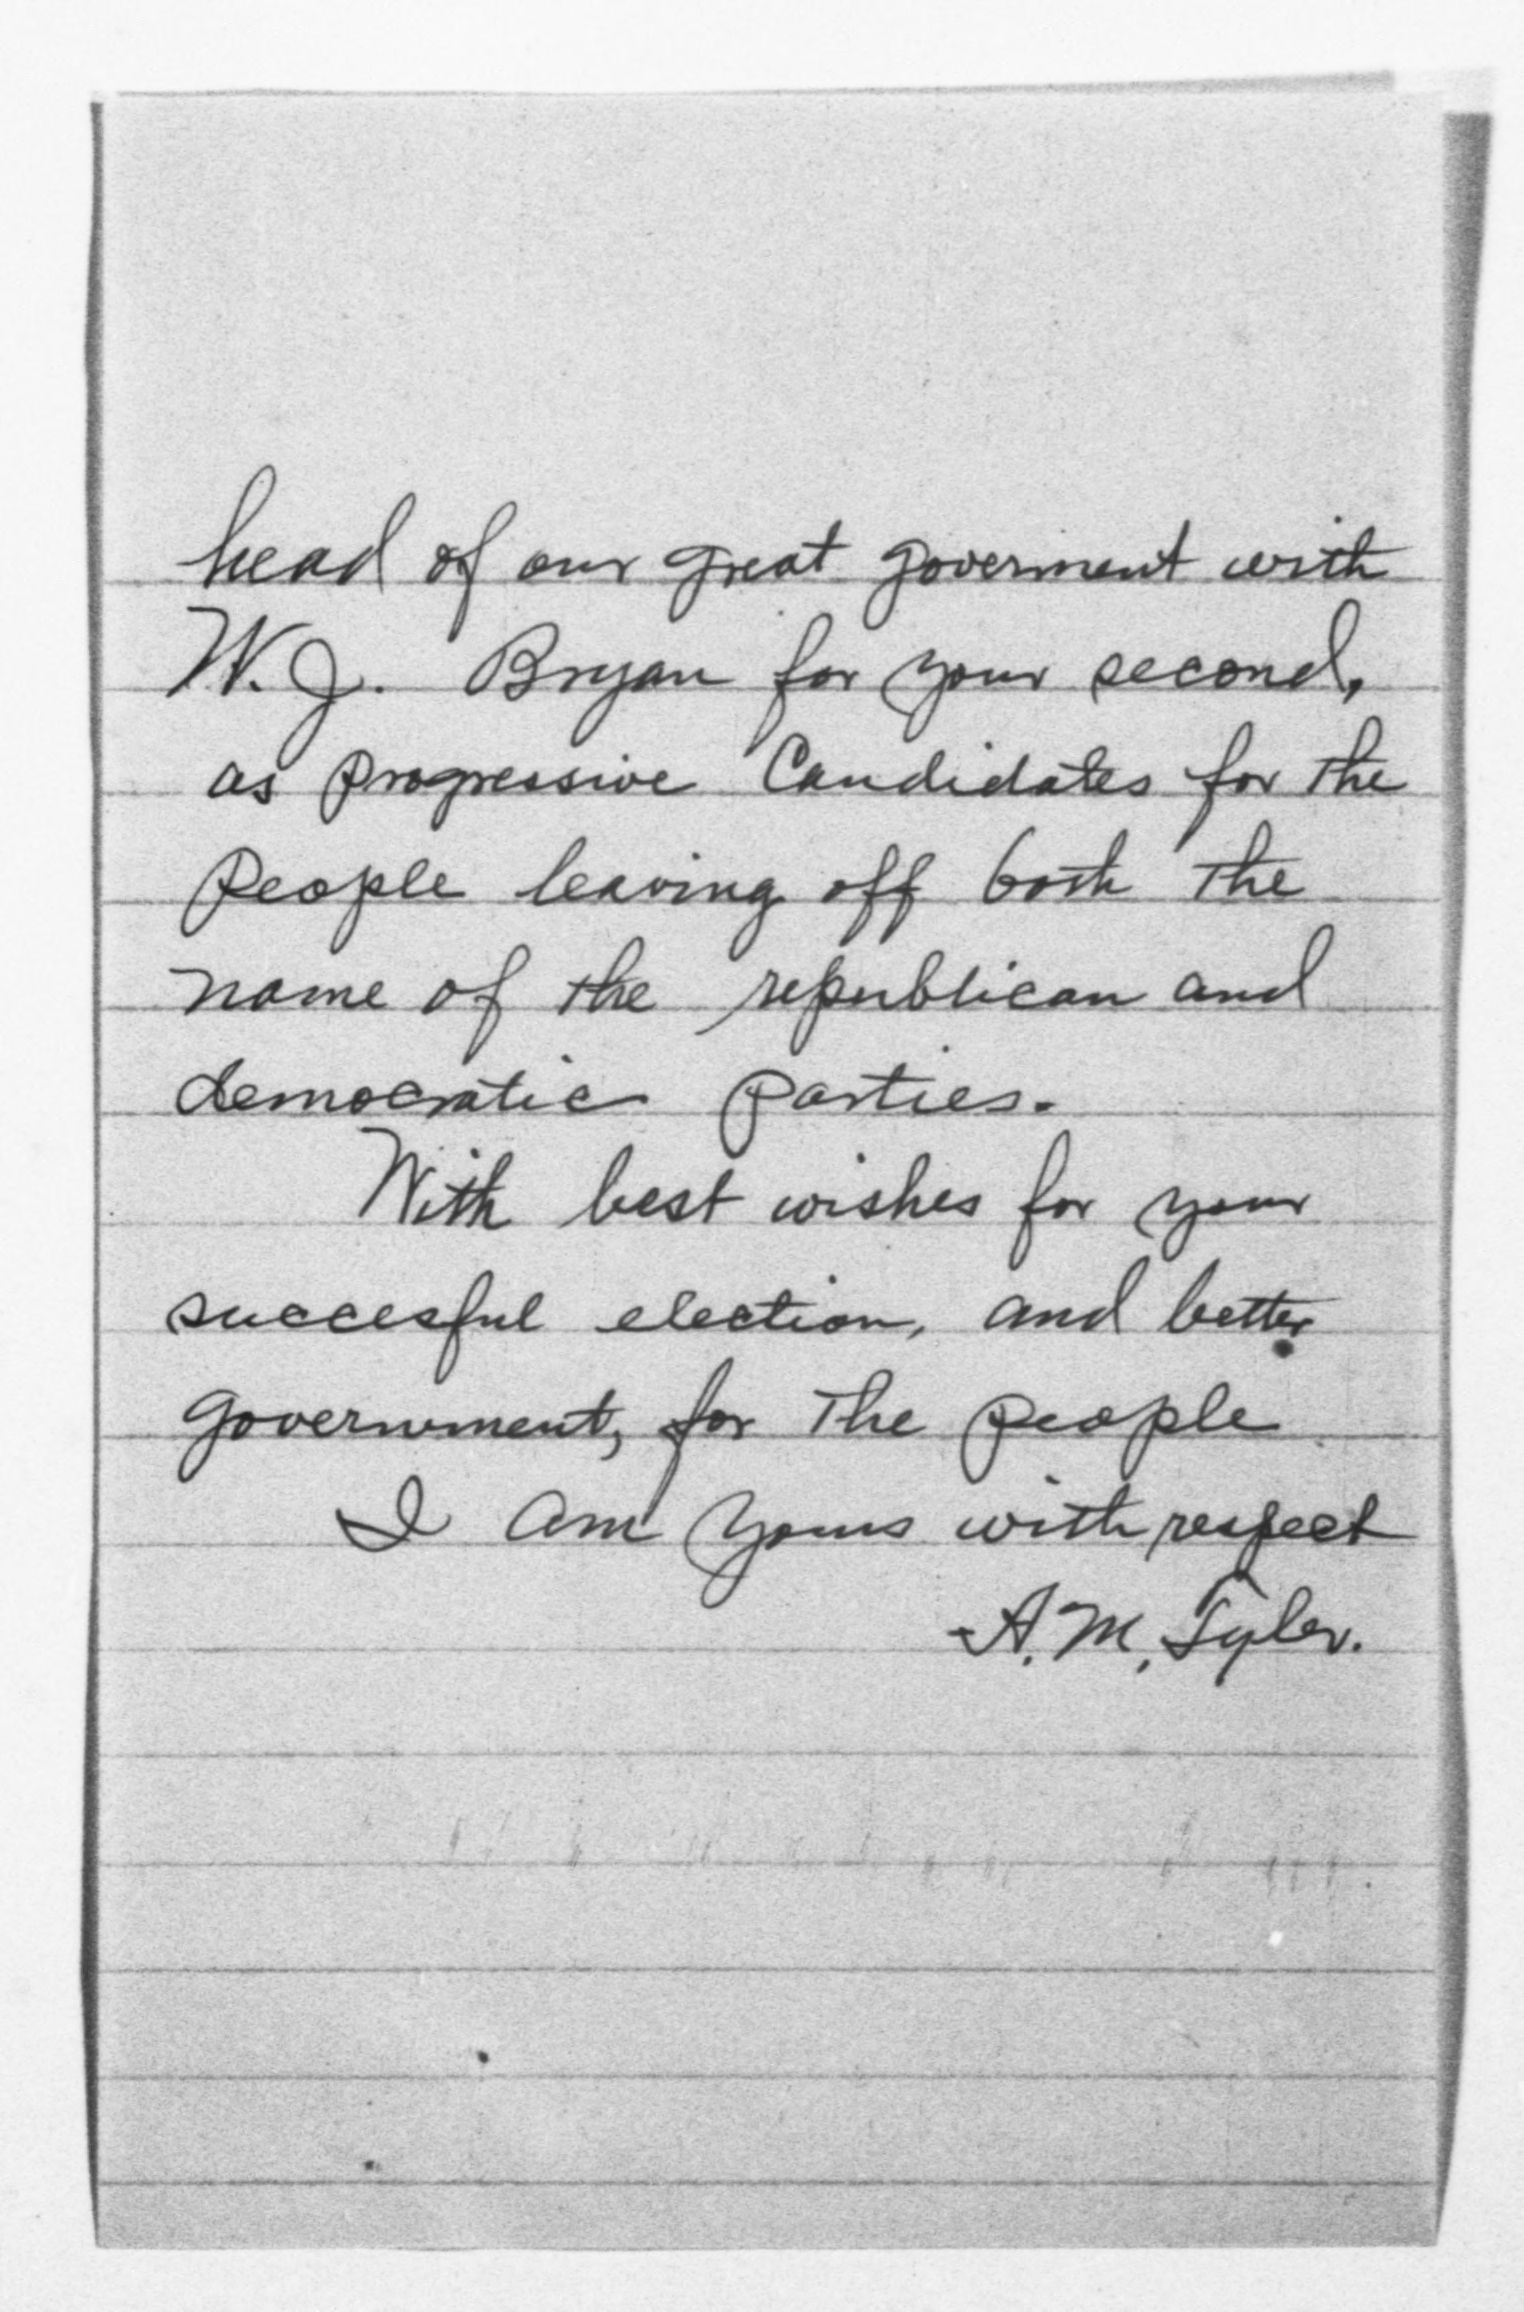 head of our great goverment with
W. J. Bryan for your second,
as progressive Candidates for the
People leaving off both the
name of the republican and
democratic parties.
With best wishes for your
succesful election, and better
government, for the people
I am yours with respect
A. M. Tyler.